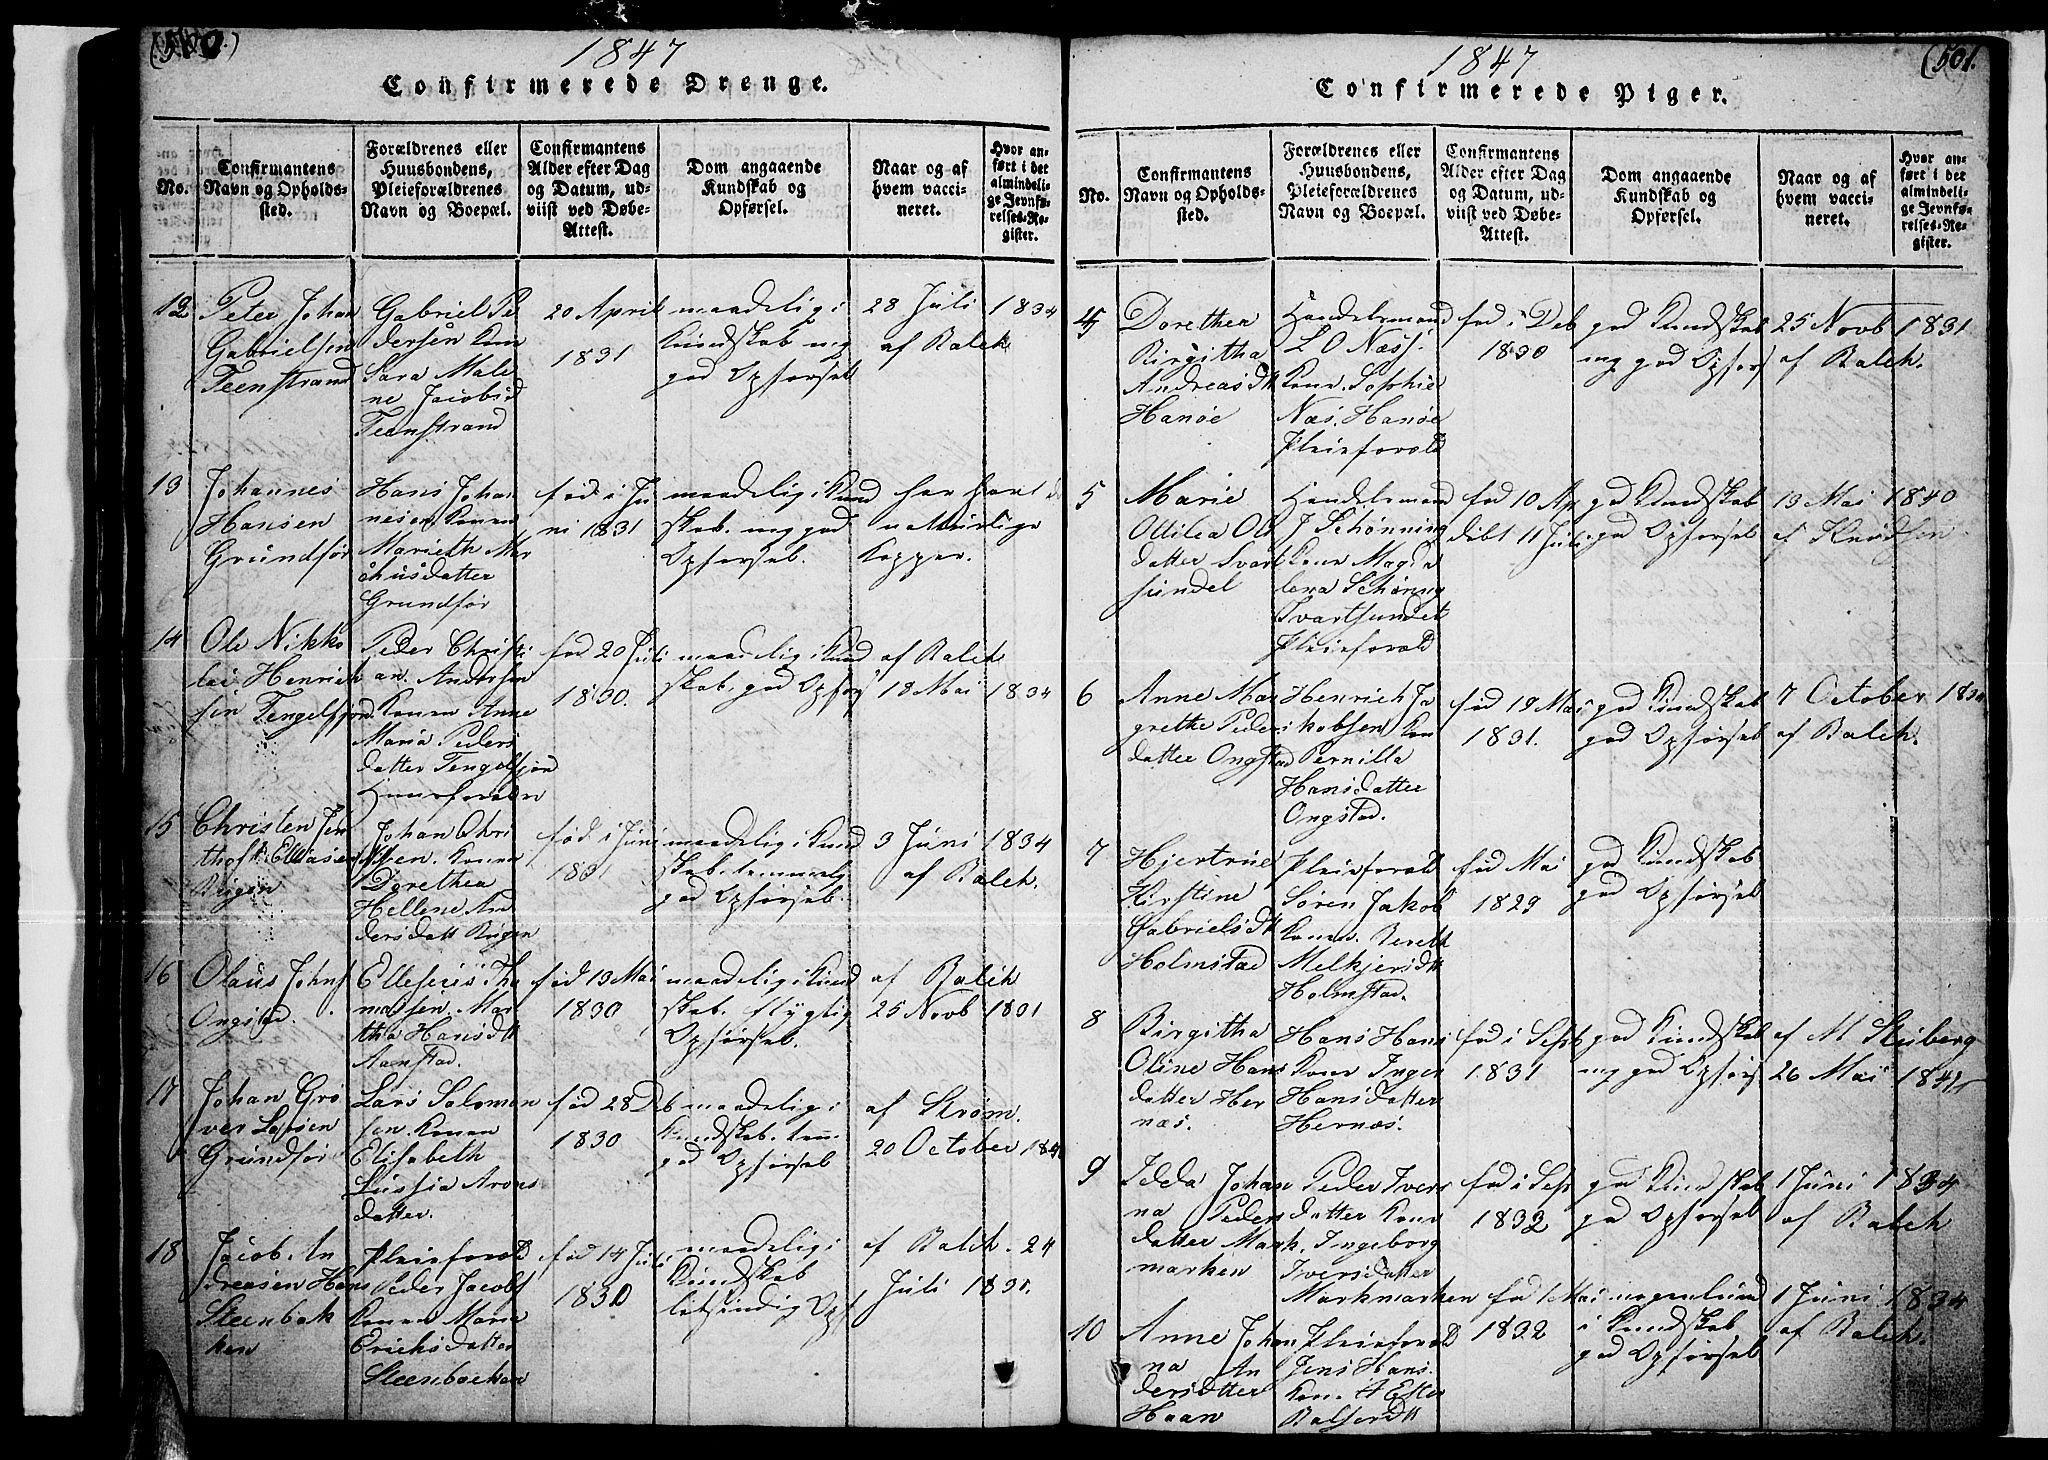 1847
Confirmerede Drenge.
No.
Confirmantens
Navn og Opholds-
sted.
Forældrenes eller
Huusbondens,
Pleieforældrenes
Navn og Boepæl.
Confirmantens
Alder efter Dag
og Datum, ud-
viist ved Døbe-
Attest.
Dom angaaende
Kundskab og
Opførsel.
Naar og af
hvem vacci-
neret.
Hvor an-
ført i det
almindeli-
ge Jevnfø-
relses-Re-
gister.
12
Peter Johan
Gabrielsen
Teenstrand
Gabriel Pe
dersen Kone
Sara Male
ne Jacobsd
Teenstrand
20 April
1831
maadelig i
Kundskab og
god Opførsel
28 Juli 1834
af Balch
13
Johannes
Hansen
Grundfør
Hans Johan
nesen Konen
Marieth Mar
Grundfør
fød i Ju
ni 1831
maadelig i Kund
skab. og god
Opførsel.
har havt de
naturlige
Kopper.
14
Ole Nikko
lai Henrich
sen Tengelfjord
Peder Christi
an. Andersen
Konen Anne
Maria Peders
datter Tengelfjord
fød 20 Juli
1830.
maadelig i Kund
skab. god Opførs
af Balch
18 Mai 1834
15
Christen Jen
thoft Elliasen
Bøigen
Johan Chri
Konen
Dorethea
Hellene An
dersdatt Bøigen
fød i Juni
1831
maadelig i Kund
skab. temmelig
god Opførsel.
3 Juni 1834
af Balch.
16
Olaus Johns
Ongstad.
Elleseus Tho
massen. Mar
tha Hansdtt
Aanstad.
fød 13 Mai
1830
maadelig i Kund
skab. flygtig
Opførsel.
af Balch
25 Novb 1831
17
Johan Grø
ver Larsen
Grundfør
Lars Salomon
sen. Konen
Elisabeth
Lussia Arons
datter.
fød 28 Deb
1830
maadelig i
Kundskab. tem.
god Opførsel
af Strøm.
20 October
18
Jacob. An
dreasen Hans
Steenbak
ken
Pleieforæld
Peder Jacobs
Konen Maria
Erichsdatter
Steenbacken
fød 14 Juli
1830
maadelig i
Kundskab
letsindig Opf
af Balch. 24
Juli 1835.
(501.
1847
Confirmerede Piger.
No.
Confirmantens
Navn og Opholds-
sted.
Forældrenes eller
Huusbondens,
Pleieforældrenes
Navn og Boepæl.
Confirmantens
Alder efter Dag
og Datum, ud-
viist ved Døbe-
Attest.
Dom angaaende
Kundskab og
Opførsel.
Naar og af
hvem vacci-
neret.
Hvor an-
ført i det
almindeli-
ge Jevnfø-
relses-Re-
gister.
4
Dorethea
Birgitha
Andreasdtt
Hanøe
Handelsmand
L O Næss.
Kone. Sophie
Næs. Hanøe
Pleieforæld
fød i Deb
1830
god Kundskab
og god Opførs
25 Novb 1831
af Balch.
5
Marie
Odilea Ols
datter Svart
sundet
Handelsmand
J Schønning
Kone Magda
lena Schøning
Svartsundet
Pleieforæld
fød 10 Ap
døbt 11 Juli
god Kundskab
god Opførsel
13 Mai 1840
af Knudsen
6
Anne Mar
grethe Peders
datter Ongstad
Henrich Ja
kobsen Kon
Pernilla
Hansdatter
Ongstad.
fød 19 Mai
1831.
god Kundskab
god Opførsel
7 October
af Balch.
7
Hjertrue
Kirstine
Gabrielsdtt
Holmstad
Pleieforæld
Søren Jakob
Konen. Bereth
Melkjersdtt
Holmstad.
fød Mai
1829
god Kundskab
god Opførsel
8
Birgitha
Oline Hans
datter Her
næs.
Hans Hans
Kone Inger
Hansdatter
Hernæs.
fød i Sept
1831
god Kundskab
og god Opførs
af M Stuberg
26 Mai
9
Idda Johan
na Peders
datter Mark
marken
Peder Ivers
datter Kone
Ingeborg
Iversdatter
Markmarken
fød i Sept
1832
god Kundskab
god Opførsel
1 Juni 1834
af Balch
10
Anne Johan
na An
dersdatter
Haan
Pleieforæld
Jens Hans.
Kon. A Ester
Balsersdtt
fød 1 Mai
1832
i Kundskab
god Opførsel
1 Juni 1834
af Balch.